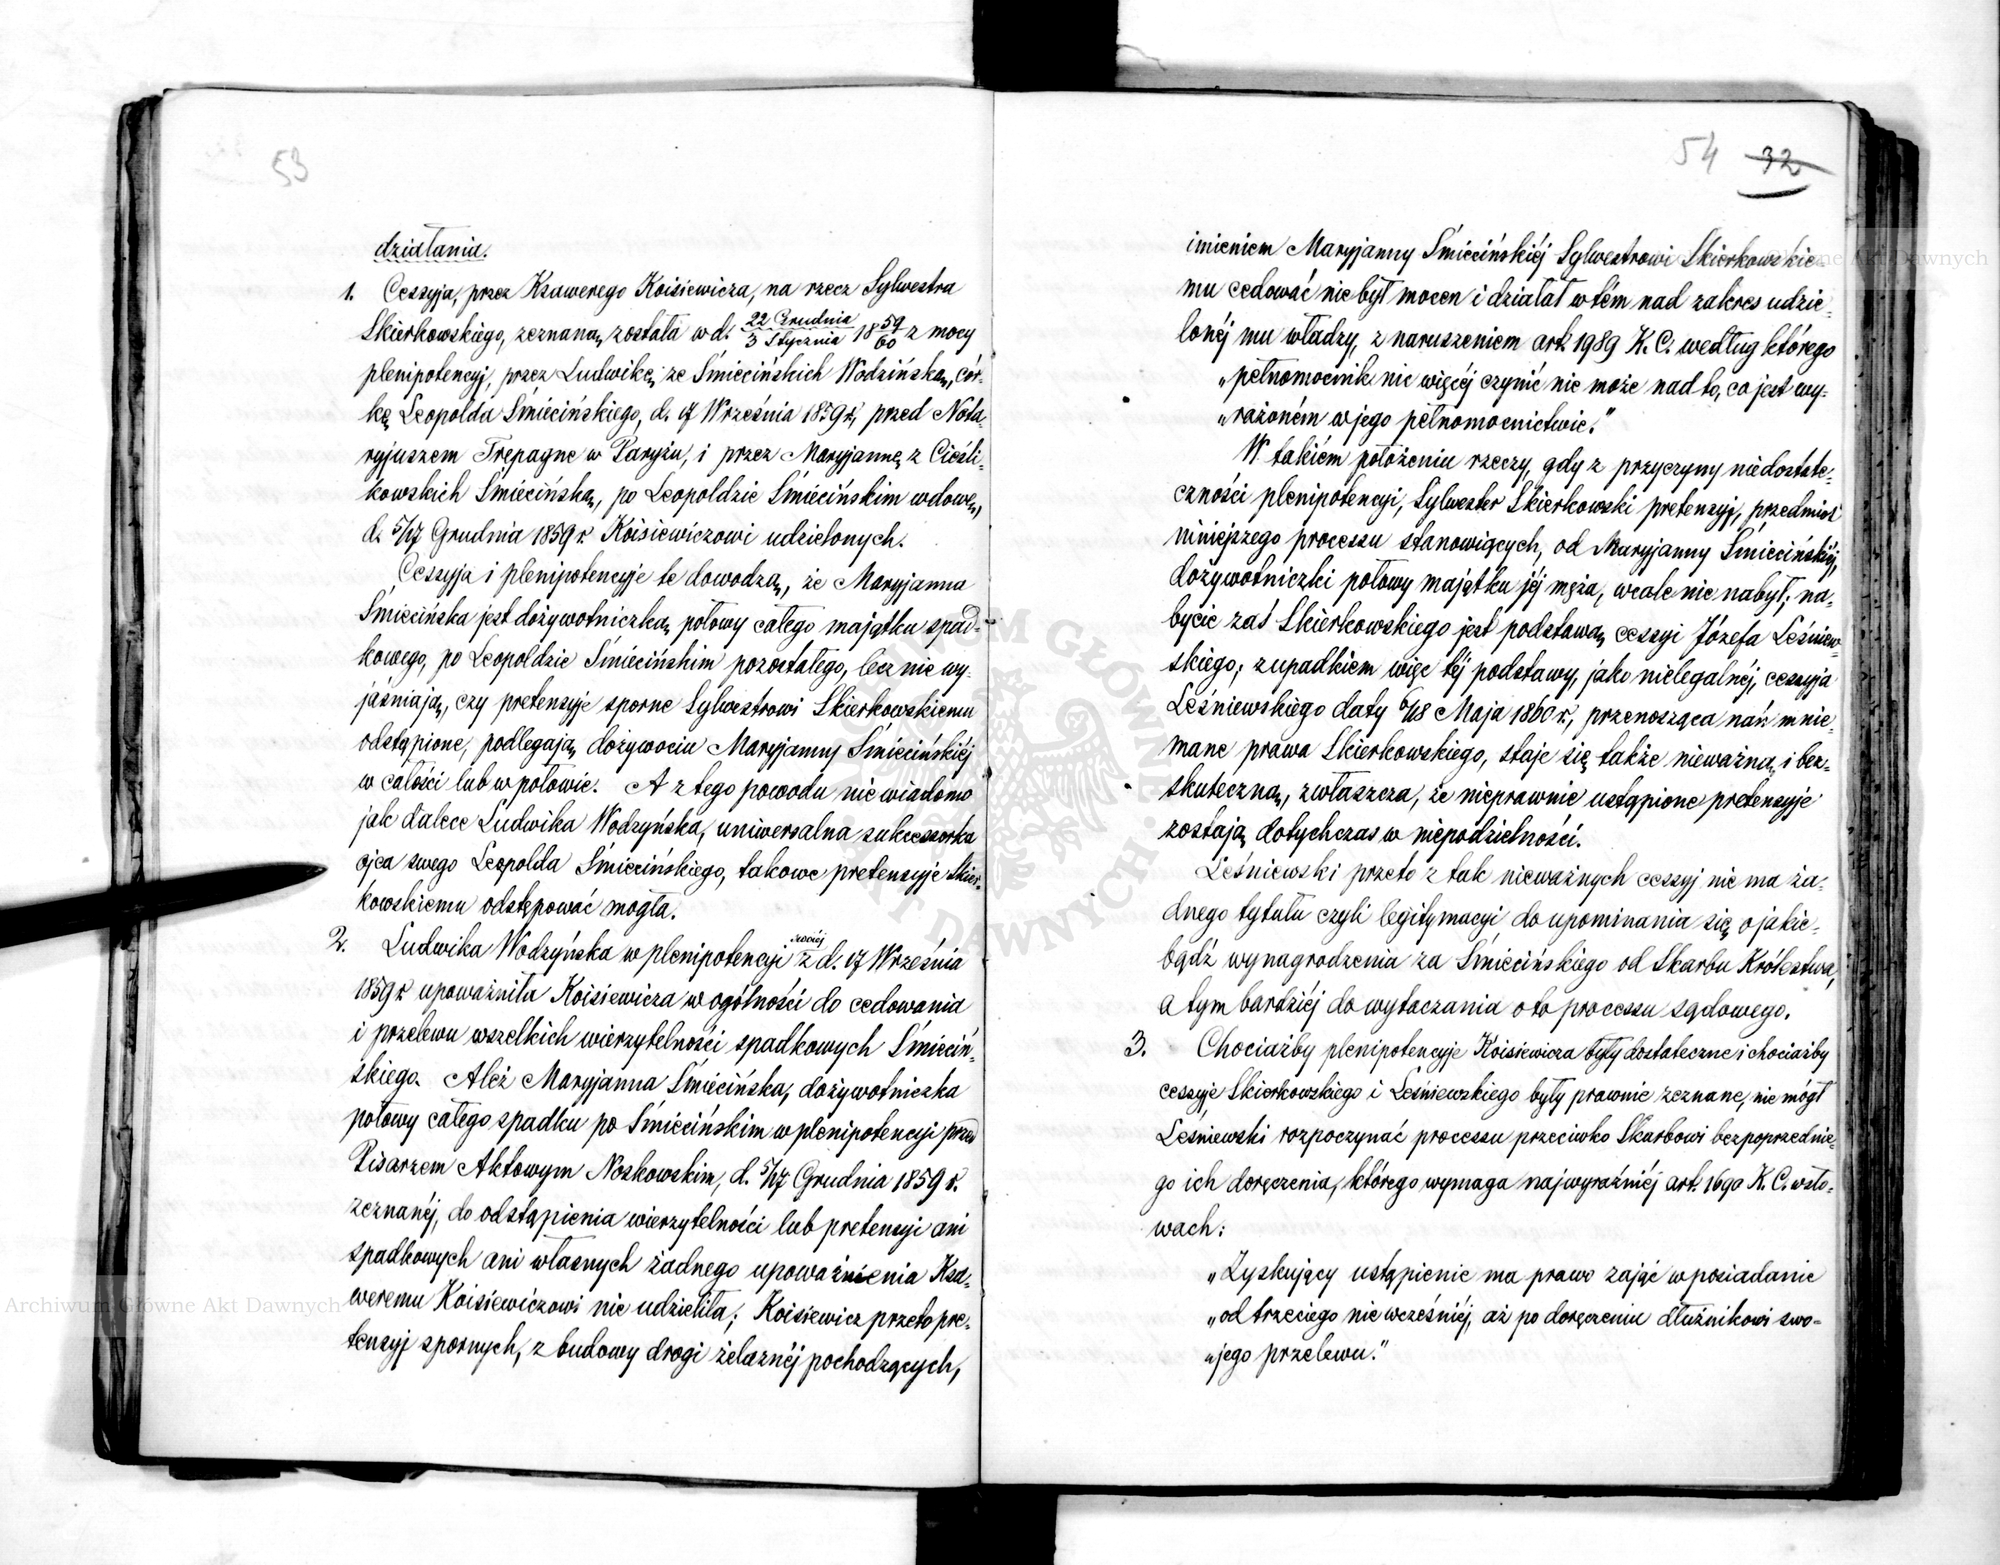 53
działania.
1. Cessyja, przez Ksawerego Koisiewicza, na rzecz Sylwestra
Skierkowskiego, zeznaną została w d. 22 Grudnia / 3 Stycznia 1859/60 z mocy
plenipotencyj, przez Ludwikę ze Śmiecińskich Wodzińską, cór-
kę Leopolda Śmiecińskiego, d. 17 Września 1859 r., przed Nota-
ryjuszem Trepagne w Paryżu, i przez Maryjannę z Cieśli-
kowskich Śmiecińską, po Leopoldzie Śmiecińskim wdowę,
d. 5/17 Grudnia 1859 r. Koisiewiczowi udzielonych.
Cessyja i plenipotencyje te dowodzą, że Maryjanna
Śmiecińska jest dożywotniczką połowy całego majątku spad-
kowego, po Leopoldzie Śmiecińskim pozostałego, lecz nie wy-
jaśniają, czy pretensyje sporne Sylwestrowi Skierkowskiemu
odstąpione, podlegają dożywociu Maryjanny Śmiecińskiéj
w całości lub w połowie. A z tego powodu nie wiadomo
jak dalece Ludwika Wodzyńska, uniwersalna sukcessorka
ojca swego Leopolda Śmiecińskiego, takowe pretensyje Skier-
kowskiemu odstępować mogła.
2. Ludwika Wodzyńska w plenipotencyi swojéj z d. 17 Września
1859 r. upoważniła Koisiewicza w ogólności do cedowania
i przelewu wszelkich wierzytelności spadkowych Śmieciń-
skiego. Aleź Maryjanna Śmiecińska, dożywotniczka
połowy całego spadku po Śmiecińskim w plenipotencyi przed
Pisarzem Aktowym Noskowskim, d. 5/17 Grudnia 1859 r.
zeznanéj, do odstąpienia wierzytelności lub pretensyi ani
spadkowych ani własnych żadnego upoważnienia Ksa-
weremu Koisiewiczowi nie udzieliła; Koisiewicz przeto pre-
tensyj spornych, z budowy drogi żelaznéj pochodzących,
54 32
imieniem Maryjanny Śmiecińskiéj Sylwestrowi Skierkowskie-
mu cedować nie był mocen i działał w tém nad zakres udzie-
lonéj mu władzy, z naruszeniem art. 1989 K. C. według którego
„pełnomocnik nic więcéj czynić nie może nad to, co jest wy-
„rażoném w jego pełnomocnictwie.”
W takiém położeniu rzeczy, gdy z przyczyny niedostate-
czności plenipotencyi, Sylwester Skierkowski pretensyj, przedmiot
niniejszego processu stanowiących, od Maryjanny Śmiecińskiéj,
dożywotniczki połowy majątku jéj męża, wcale nie nabył; na-
bycie zaś Skierkowskiego jest podstawą cessyi Józefa Leśniew-
skiego; z upadkiem więc téj podstawy, jako nielegalnéj, cessyja
Leśniewskiego daty 6/18 Maja 1860 r., przenosząca nań mnie-
mane prawa Skierkowskiego, staje się także nieważną i bez-
skuteczną, zwłaszcza, że nieprawnie ustąpione pretensyje
zostają dotychczas w niepodzielności.
Leśniewski przeto z tak nieważnych cessyj nie ma ża-
dnego tytułu czyli legitymacyi do upominania się o jakie-
bądź wynagrodzenia za Śmiecińskiego od Skarbu Królestwa,
a tym bardziéj do wytaczania o to processu sądowego.
3. Chociażby plenipotencyje Koisiewicza były dostateczne i chociażby
cessyje Skierkowskiego i Leśniewskiego były prawnie zeznane, nie mógł
Leśniewski rozpoczynać processu przeciwko Skarbowi bez poprzednie-
go ich doręczenia, którego wymaga najwyraźniéj art. 1690 K. C. w sło-
wach:
„Zyskujący ustąpienie ma prawo zająć w posiadanie
„od trzeciego nie wcześniéj, aż po doręczeniu dłużnikowi swo-
„jego przelewu.”
Archiwum Główne Akt Dawnych